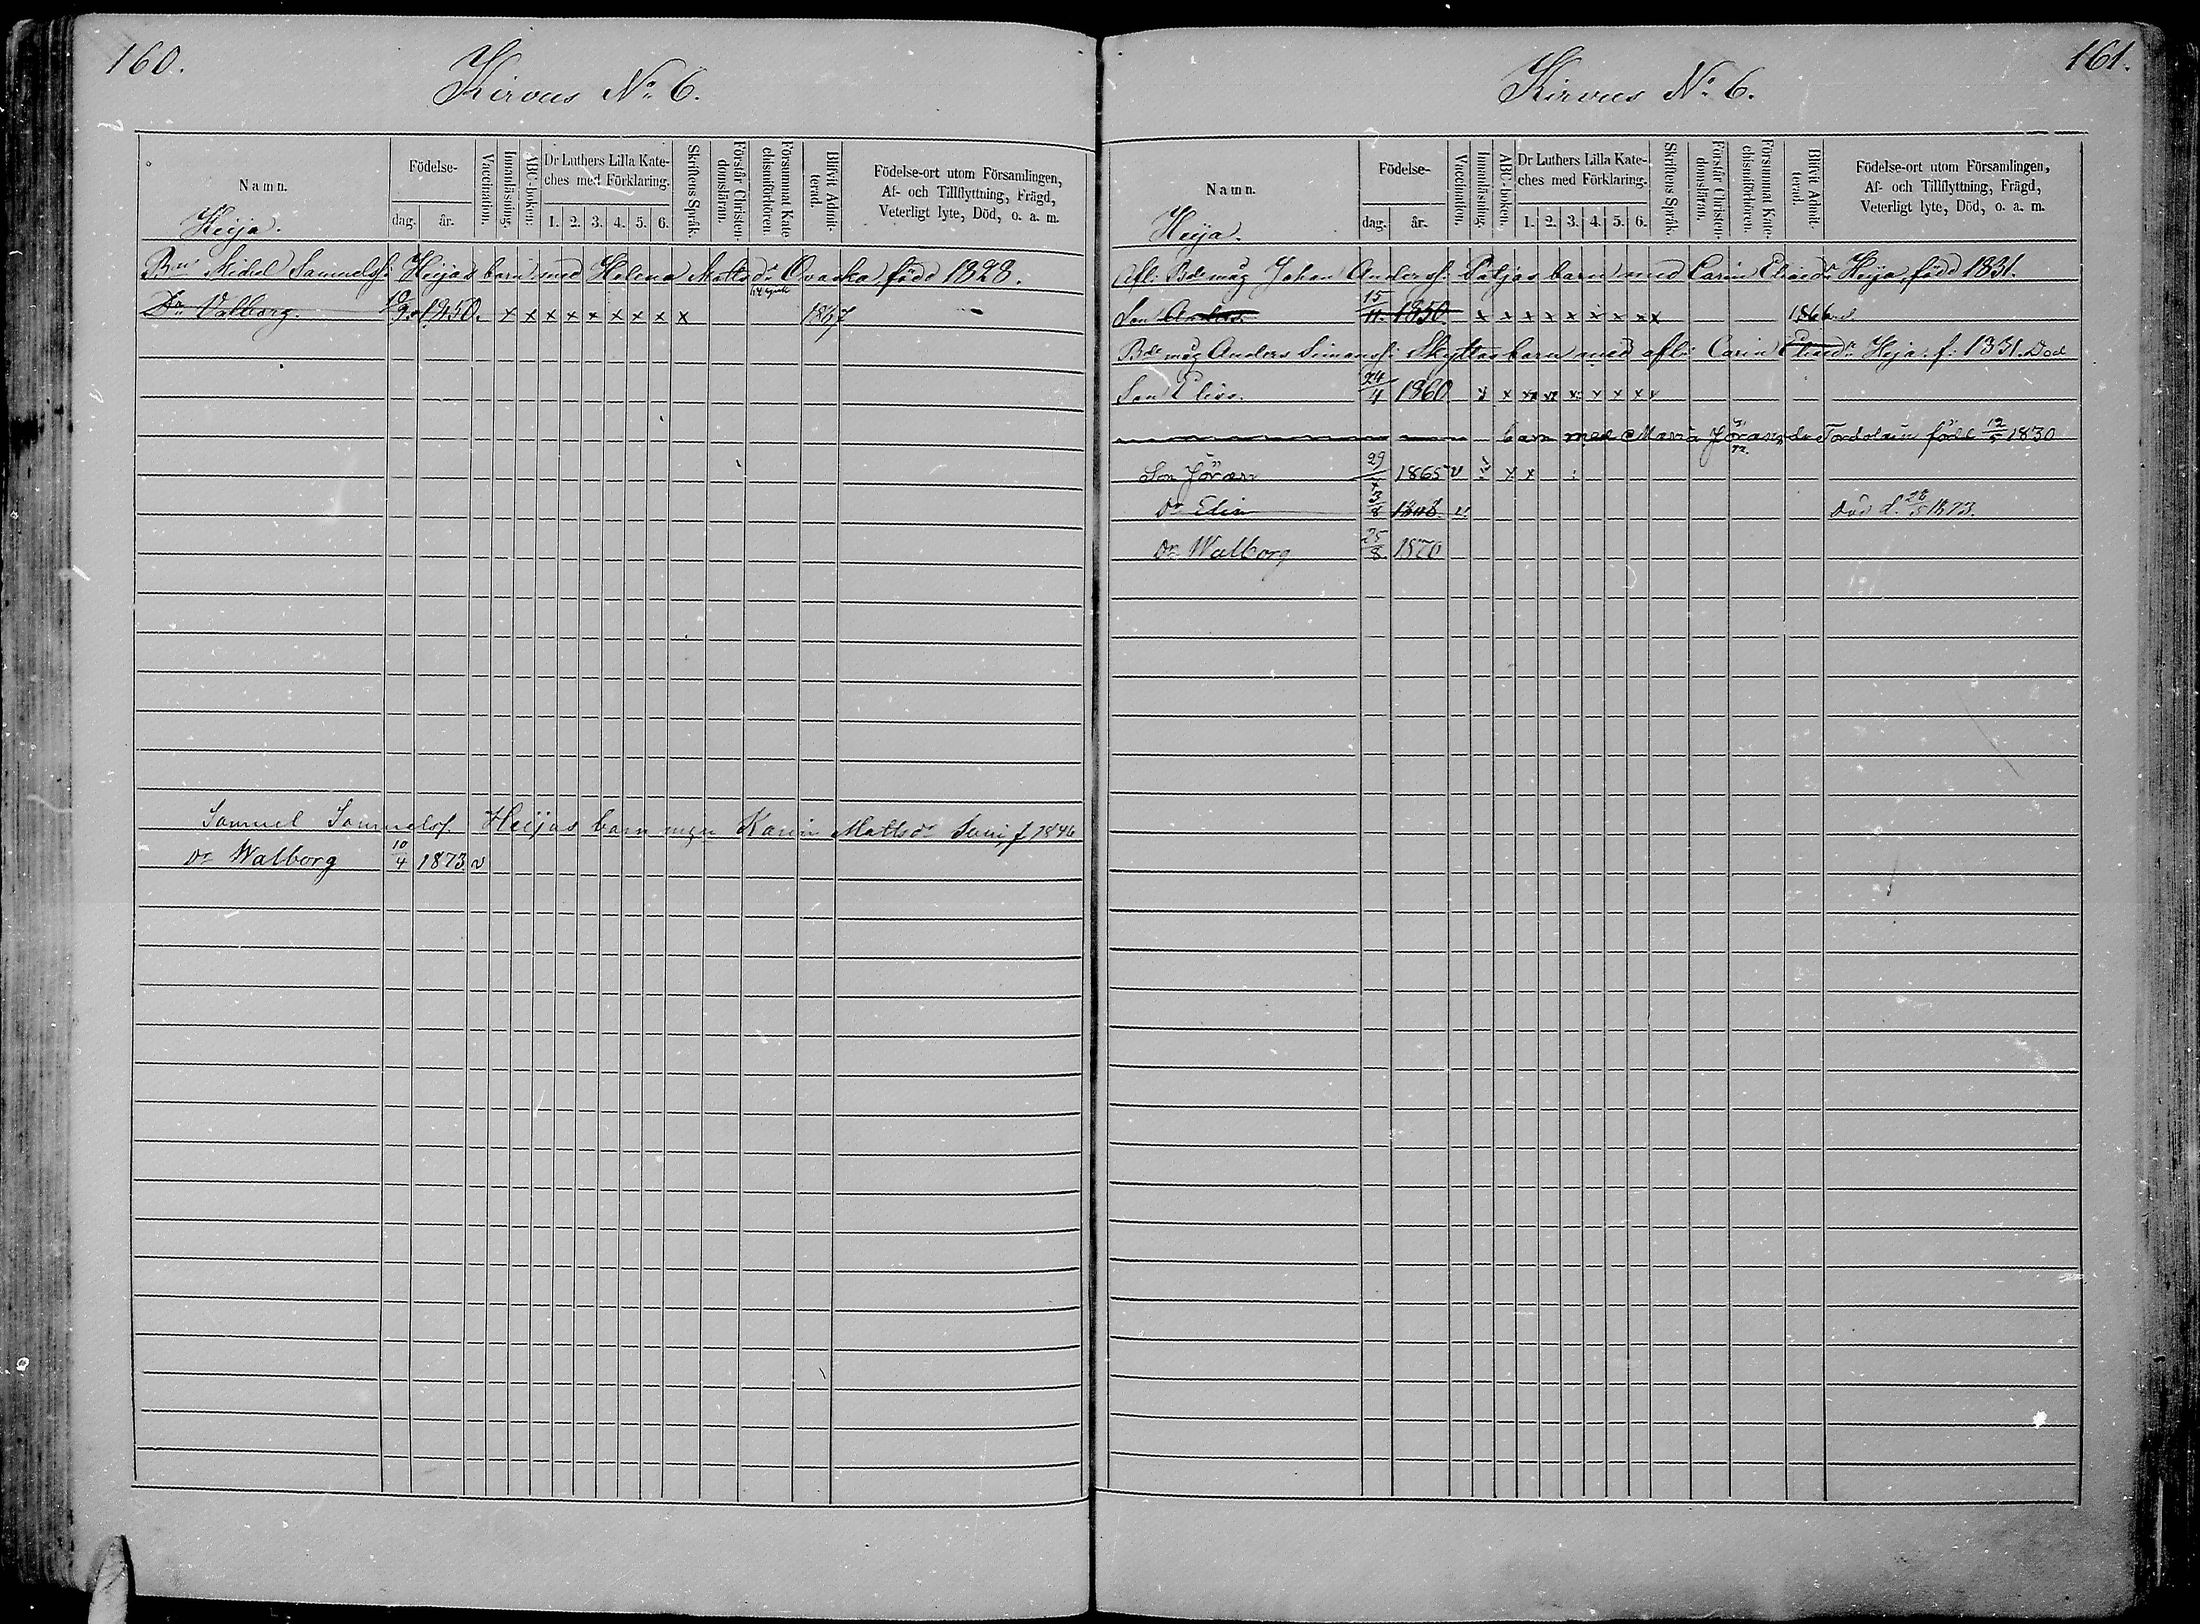 160.
Kirvus No 6.
Namn.
Födelse-
dag. år.
Vaccination.
Innanläsning.
ABC-boken.
Dr Luthers Lilla Kate-
ches med Förklaring.
1. 2. 3. 4. 5. 6.
Skriftens Språk.
Förstår Christen-
domsläran.
Försummat Kate-
chismiförhören.
Blifvit Admit-
terad.
Födelse-ort utom Församlingen,
Af- och Tillflyttning, Frägd,
Veterligt lyte, Död, o. a. m.
Heija.
Bn Mickel Samuelss: Heijas barn med Helena Mattsdr Ovaska född 1828.
Dr Valborg. 1850. x x x x x x x x x 1867
Samuel Samuelsf. Heijas barn med Karin Mattsdr Suni, f 1846
Dr Walborg 10/4 1873 v
161.
Kirvus No 6.
Namn.
Födelse-
dag. år.
Vaccination.
Innanläsning.
ABC-boken.
Dr Luthers Lilla Kate-
ches med Förklaring.
1. 2. 3. 4. 5. 6.
Skriftens Språk.
Förstår Christen-
domsläran.
Försummat Kate-
chismiförhören.
Blifvit Admit-
terad.
Födelse-ort utom Församlingen,
Af- och Tillflyttning, Frägd,
Veterligt lyte, Död, o. a. m.
Heija.
Afl. Bde måg Johan Anderss: barn med Carin Eliaedr Heija, född 1831.
Son Anders. 15/11 1850. x x x x x x x x x 1866
Bde måg Anders Simonss: Skyttas barn med afl: Carin Eliaedr Heija: f: 1831. Död
Son Elias. 24/4 1860 x x x x x x x x
barn med Maria Göransdr Tordolain född 12/5 1830
Son Göran 29 1865 v x x
Dr Elin 3/8 1868 v. Död d. 28/5 1873.
Dr Walborg 25/8 1870